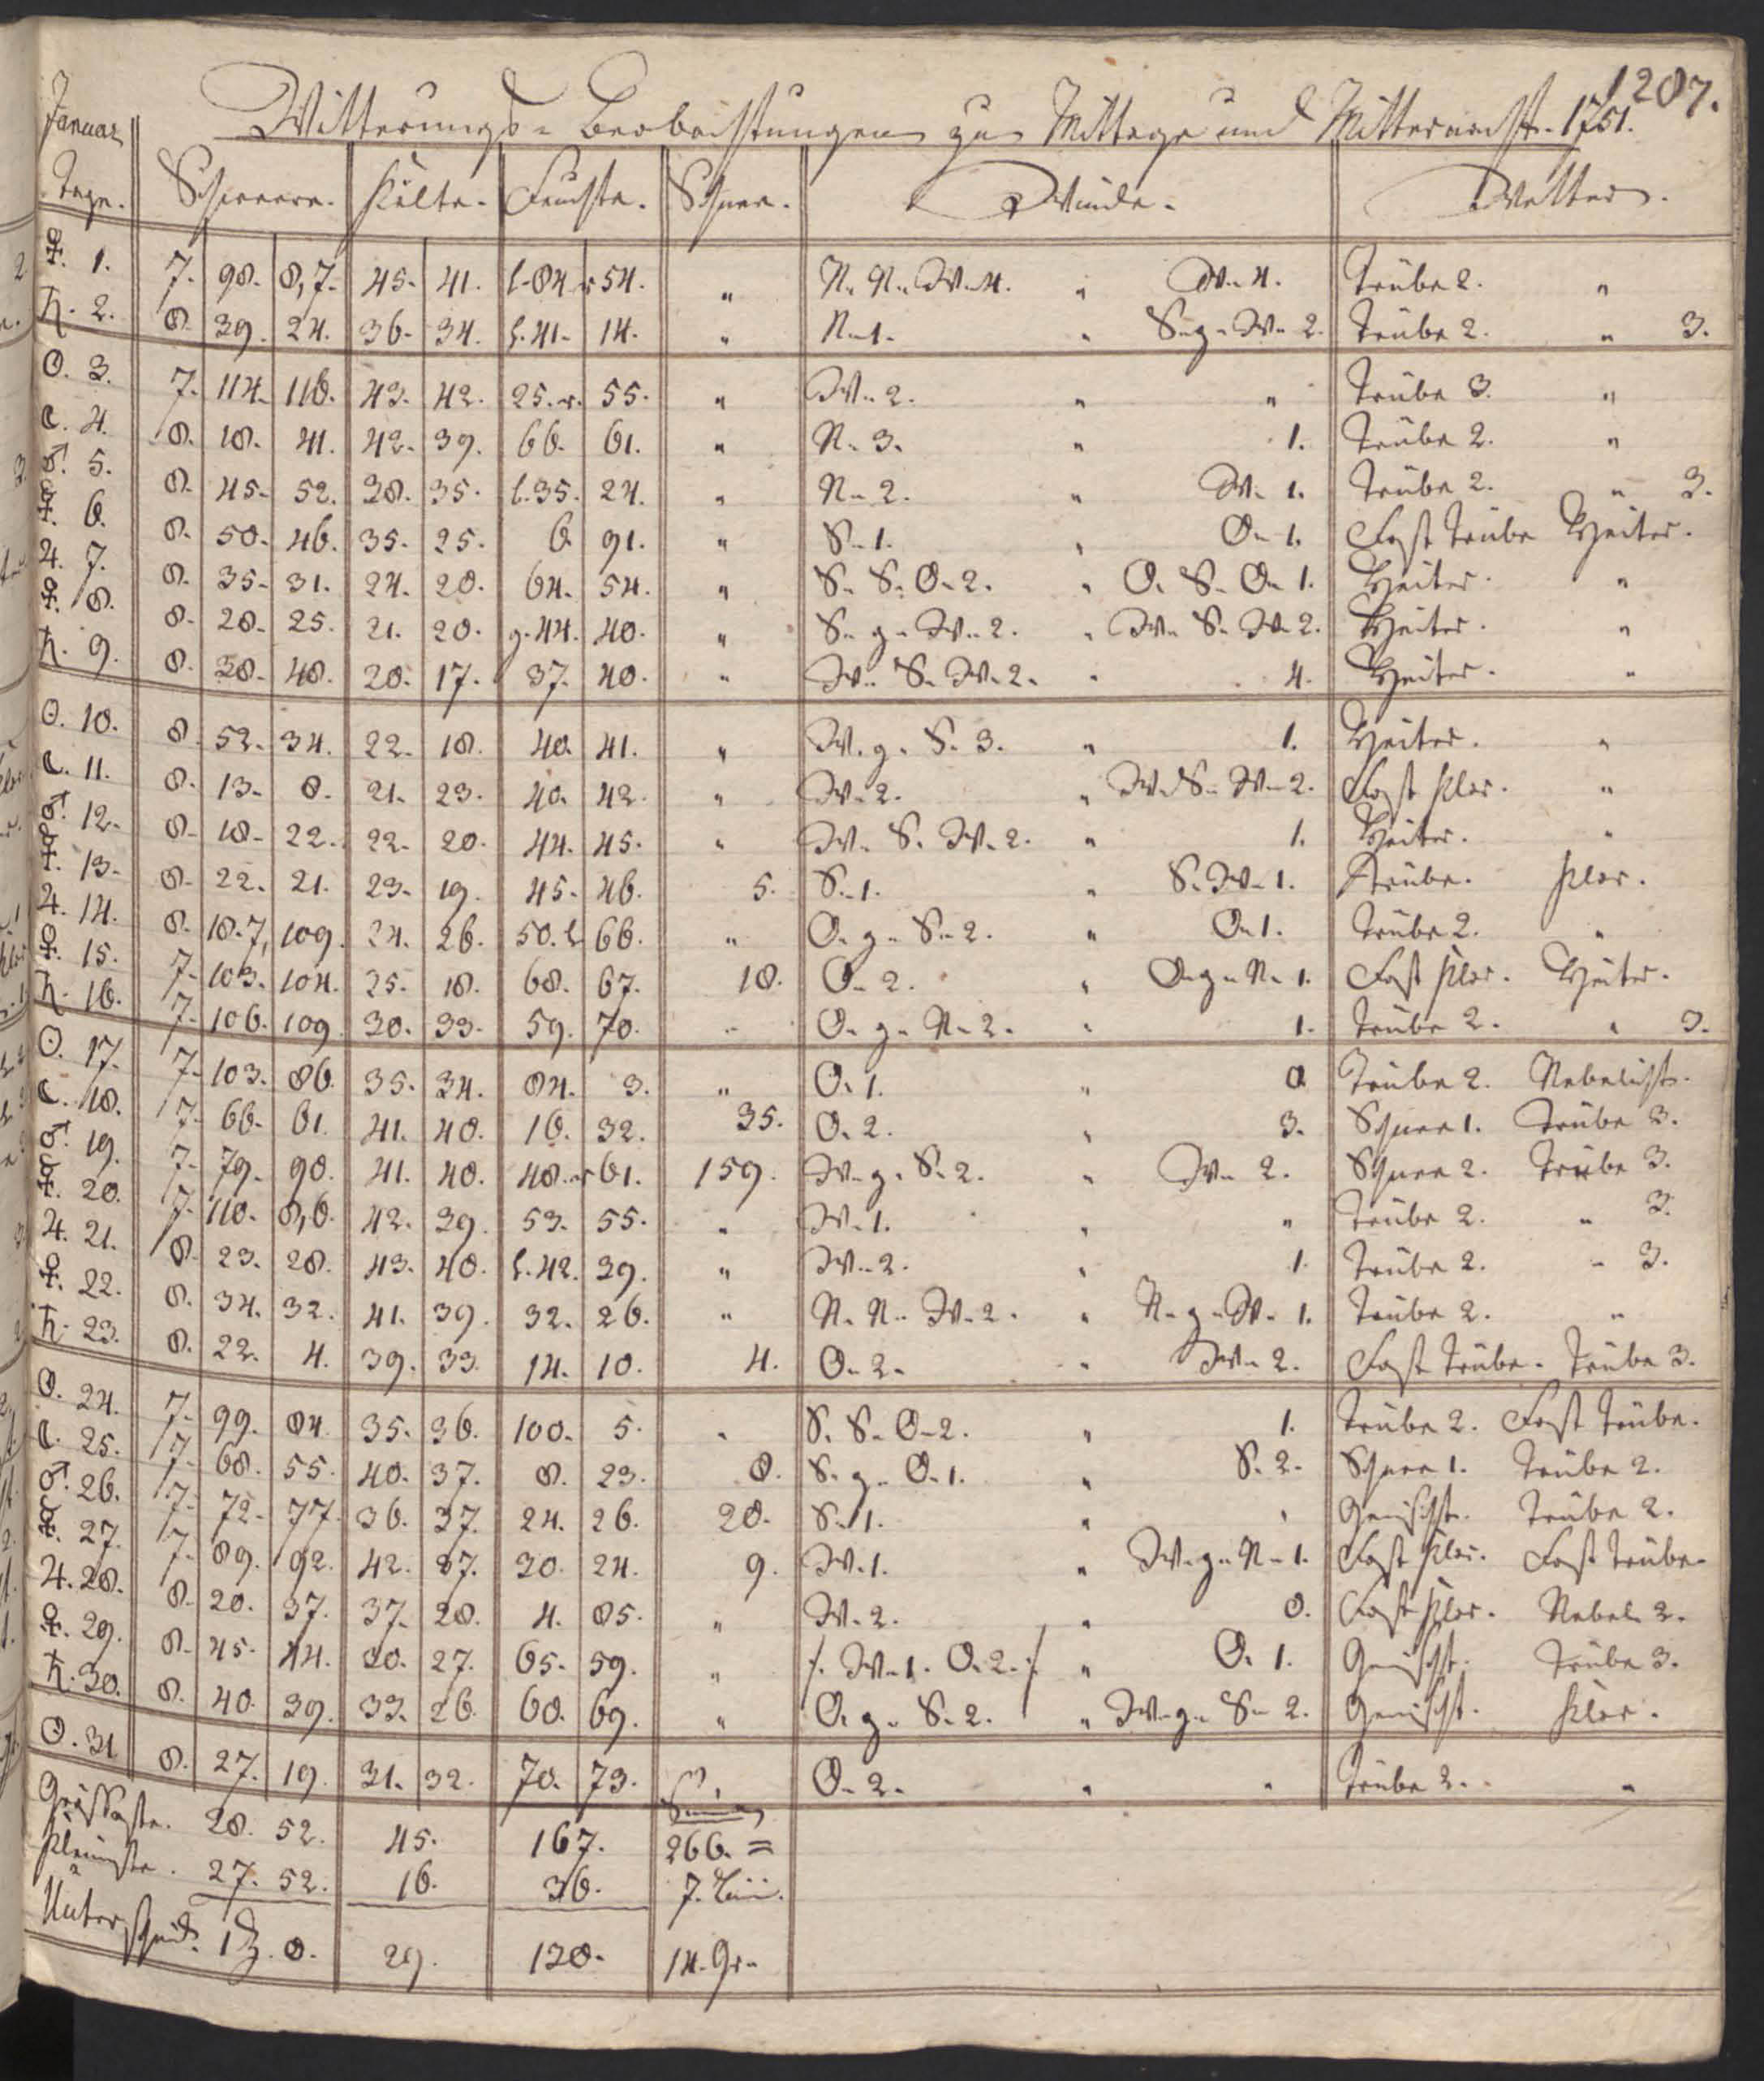 1287.
Januar Witterungs-Beobachtungen zu Mittage und Mitternacht. 1751.
Tage. Schwere. Kälte. Feuchte. Schnee. Winde. Wetter.
♀. 1. 7. 98. 8,7. 45. 41. l. 84. r 54. " N. N. W. 4. " W. 4. Trübe 2. "
♄. 2. 8. 39. 24. 36. 34. l. 41. 14. " N. 1. " S. g. W. 2. Trübe 2. " 3.
☉. 3. 7. 114. 118. 43. 42. 25. r. 55. " W. 2. " " Trübe 3. "
☾. 4. 8. 18. 41. 42. 39. 66. 61. " N. 3. " 1. Trübe 2. "
♂. 5. 8. 45. 52. 38. 35. l. 35. 24. " N. 2. " W. 1. Trübe 2. " 3.
☿. 6. 8. 50. 46. 35. 25. 6 91. " S. 1. " O. 1. Fast Trübe Heiter.
♃. 7. 8. 35. 31. 24. 20. 64. 54. " S. S. O. 2. " O. S. O. 1. Heiter. "
♀. 8. 8. 28. 25. 21. 20. g. 44. 40. " S. g. W. 2. " W. S. W. 2. Heiter. "
♄. 9. 8. 38. 48. 20. 17. 37. 40. " W. S. W. 2. " 4. Heiter. "
☉. 10. 8. 52. 34. 22. 18. 40. 41. " W. g. S. 3. " 1. Heiter. "
☾. 11. 8. 13. 8. 21. 23. 40. 42. " W. 2. " W. S. W. 2. Fast Klar. "
♂. 12. 8. 18. 22. 22. 20. 44. 45. " W. S. W. 2. " 1. Heiter. "
☿. 13. 8. 22. 21. 23. 19. 45. 46. 5. S. 1. " S. W. 1. Trübe. Klar.
♃. 14. 8. 18. 7, 109. 24. 26. 50. l 66. " O. g. S. 2. " O. 1. Trübe 2. "
♀. 15. 7. 103. 104. 25. 18. 68. 67. 18. O. 2. " O. g. N. 1. Fast Klar. Heiter.
♄. 16. 7. 106. 109. 30. 33. 59. 70. " O. g. N. 2. " 1. Trübe 2. " 3.
☉. 17. 7. 103. 86. 35. 34. 84. 3. " O. 1. " 0 Trübe 2. Nebelicht.
☾. 18. 7. 66. 61. 41. 40. 16. 32. 35. O. 2. " 3. Schnee 1. Trübe 3.
♂. 19. 7. 79. 90. 41. 40. 48. r 61. 159. W. g. S. 2. " W. 2. Schnee 2. Trübe 3.
☿. 20. 7. 110. 8,6. 42. 39. 53. 55. " W. 1. " " Trübe 2. " 3.
♃. 21. 8. 23. 28. 43. 40. l. 42. 39. " W. 2. " 1. Trübe 2. " 3.
♀. 22. 8. 34. 32. 41. 39. 32. 26. " N. N. W. 2. " N. g. W. 1. Trübe 2. "
♄. 23. 8. 22. 4. 39. 33. 14. 10. 4. O. 2. " W. 2. Fast Trübe. Trübe 3.
☉. 24. 7. 99. 84. 35. 36. 100. 5. " S. S. O. 2. " 1. Trübe 2. Fast Trübe.
☾. 25. 7. 68. 55. 40. 37. 8. 23. 8. S. g. O. 1. " S. 2. Schnee 1. Trübe 2.
♂. 26. 7. 72. 77. 36. 37. 24. 26. 28. S. 1. " " Gemischt. Trübe 2.
☿. 27. 7. 89. 92. 42. 37. 30. 24. 9. W. 1. " W. g. N. 1. Fast Klar. Fast Trübe.
♃. 28. 8. 20. 37. 37. 28. 4. 85. " W. 2. " 0. Fast Klar. Nebel 2.
♀. 29. 8. 45. 44. 30. 27. 65. 59. " /. W. 1. O. 2. ./ " O. 1. Gemischt. Trübe 3.
♄. 30. 8. 40. 39. 33. 26. 60. 69. " O. g. S. 2. " W. g. S. 2. Gemischt. Klar.
☉. 31 8. 27. 19. 31. 32. 70. 73. " O. 2. " " Trübe 2. "
Summa
Grösseste. 28. 52. 45. 167. 266. =
Kleinste. 27. 52. 16. 36. 7. Lin.
Unterscheid. 1 Z. 0. 29. 130. 14. Gr.